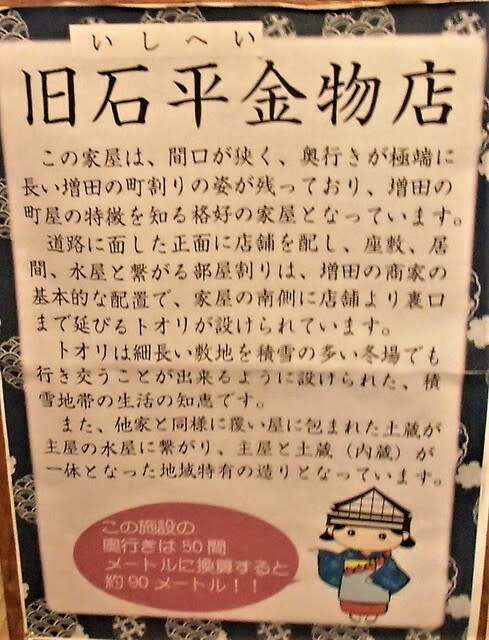 いしへい
旧石平金物店
この家屋は、間口が狭く、奥行きが極端に
長い増田の町割りの姿が残っており、増田の
町屋の特徴を知る格好の家屋となっています。
道路に面した正面に店舗を配し、座敷、居
間、水屋と繋がる部屋割りは、増田の商家の
基本的な配置で、家屋の南側に店舗より裏口
まで延びるトオリが設けられています。
トオリは細長い敷地を積雪の多い冬場でも
行き交うことが出来るように設けられた、積
雪地帯の生活の知恵です。
また、他家と同様に覆い屋に包まれた土蔵が
主屋の水屋に繋がり、主屋と土蔵（内蔵）が
一体となった地域特有の造りとなっています。
この施設の
奥行きは50間
メートルに換算すると
約90メートル！！